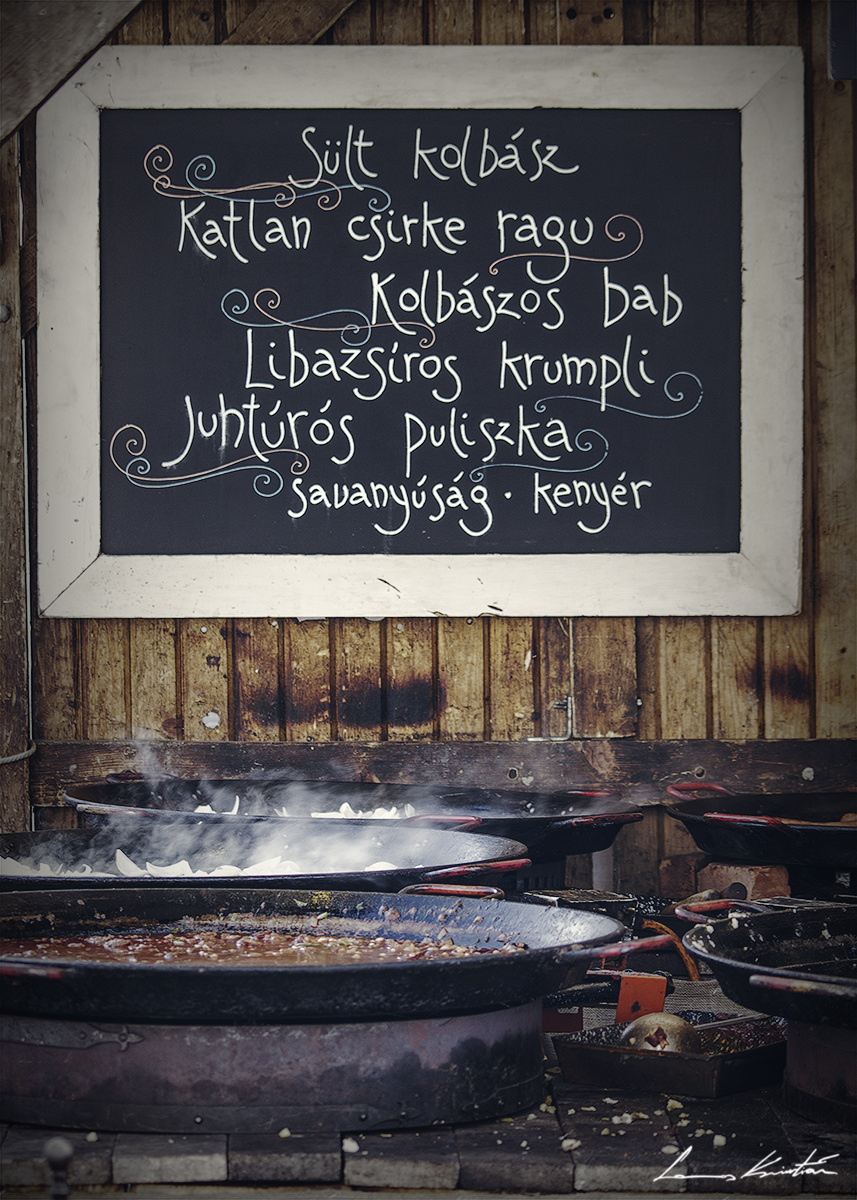 Sült kolbász
Katlan csirke ragu
Kolbászos bab
Libazsíros krumpli
Juhtúrós puliszka
savanyúság · kenyér